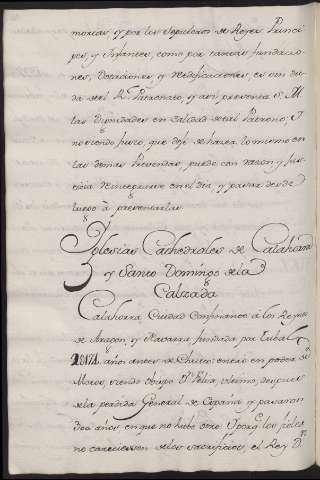 morias, y por los Sepulcros de Reyes Princi-
pes, y Infantes, como por tantas fundacio-
nes, Dotaciones, y reedificaciones, es sin du-
da del Rl. Patronato, y assi presenta S. M.
las Dignidades en calidad de tal Patrono; I
no siendo justo, que dexe de hacer lo mismo en
las demas Prevendas, puede con razon, y jus-
ticia reintegrarse en el dia y pasar desde
luego à presentarlas.
Yglesias Cathedrales de Calahorra
y Santo Domingo de la
Calzada
Calahorra Ciudad Confinante à los Reynos
de Aragon, y Navarra fundada por Tubal
años antes de Christo: entrò en poder de
Moros, siendo obispo Dn. Felix, ultimo, despues
de la perdida General de España y pasaron
300 años en que no hubo otro: Y porq. los fieles
no careciesen de los sacrificios, el Rey Dn.